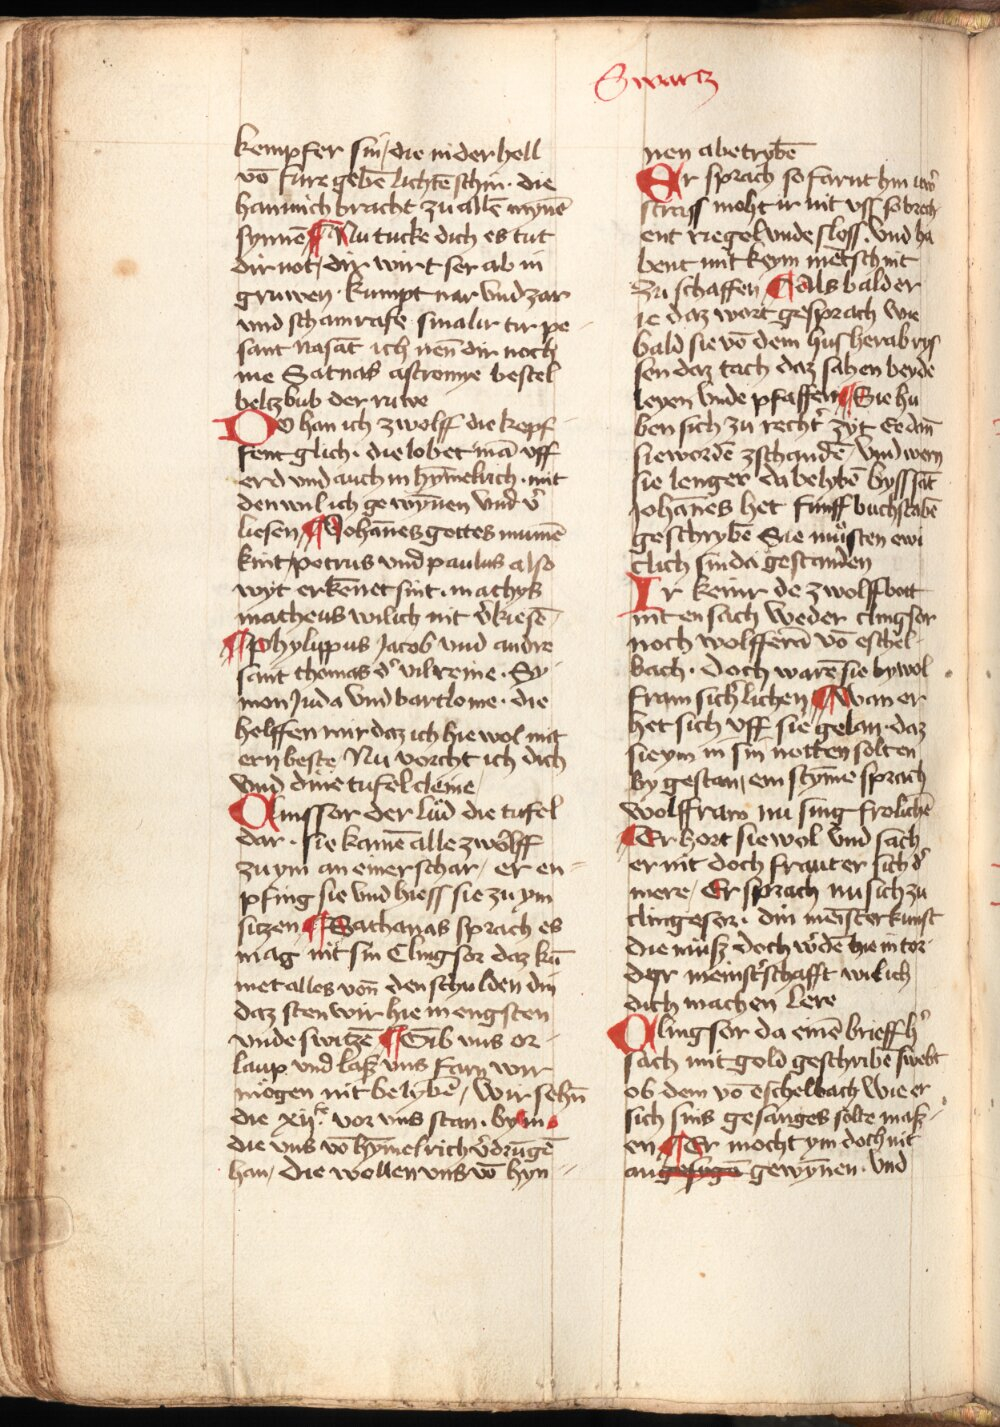 Swartz
kempfer sin / die in der hell
vō fure gebē lichtē schin · die
han mich bracht zu allē mynē
synnē ¶ Nu tucke dich es tut
dir not / dir wirt ser ab in
gruwen · kumpt nar vnd zar
vnd schamrafe smalir tir pe -
sant Nasāt ich nen dir noch
me Satnas astromye bestel
beltzbub der ruwe
Do han ich zwolff die kepf
fent glich · die lobet mā vff
erd vnd auch in hȳmelrich · mit
den wil ich gewȳnen vnd v̓
liesen ¶ Johānes gottes mumē
kint / petrus vnd paulus also
wyt erkēnet sint · mathys
matheus wil ich nit v̓kiesē
¶ phylippus Jacob vnd andre
sant thomas d̓ vil reine · Sy
mon Juda vnd bartlome · die
helffen mir daz ich hie wol mit
ern beste / Nu vorcht ich dich
vnd dine tufel cleine
Clinssor der lud die tufel
dar · sie kamē alle zwolff
zu ym an einer schar / er en -
pfing sie vnd hiess sie zu ym
sitzen ¶ Sathanas sprach es
mag nit sin Clingsor daz kū
met alles von den schulden din
daz sten wir hie in engsten
vnde switzē ¶ Gib vns or -
laup vnd laß vns farn wir
mogen nit belybē / wir sehn
die xij vor vns stan · by in
die vns vō hȳmelrich v̓drūgē
han / die wollen vns vō hyn -
nen abe trybē
Er sprach so farnt hin uw̓
strass moht ir nit vss so brech
ent rigel vnde sloss · vnd ha
bent mit keym mētsch nit
zu schaffen ¶ Als bald er
ie daz wort gesprach wie
bald sie vō dem hus herab rys
sen daz tach daz sahen beyde
leyen vnde pfaffen ¶ Sie hu
ben sich zu recht̓ zyt Ee dan
sie wordē zschandē / vnd wern
sie lenger da belybē byss sāt
Johānes het funff buchstabē
geschrybē Sie mūsten ewi
clich sin da gestanden
Ir keinr de zwolffbott
nit en sach weder clingsor
noch wolfferā vō eschel -
bach · doch warē sie by wol
fram sich̓lichen ¶ Wan er
het sich vff sie gelan · daz
sie ym in sin notten solten
by gestan / ein stȳme sprach
wolffram nu sing frolichē
¶ Er hort sie wol vnd sach
er nit doch frauter sich d̓
mere / Er sprach nu sich zu
clingesor · din meisterkunst
die muß doch w̓dē hie in tor -
der meinst̓schafft wil ich
dich machen lere
Clingsor da einē brieff h̓
sach mit gold geschribē swebt
ob dem vō eschelbach wie er
sich sins gesanges solte maß -
en ¶ Er mocht ym doch nit
an gewȳnen · vnd